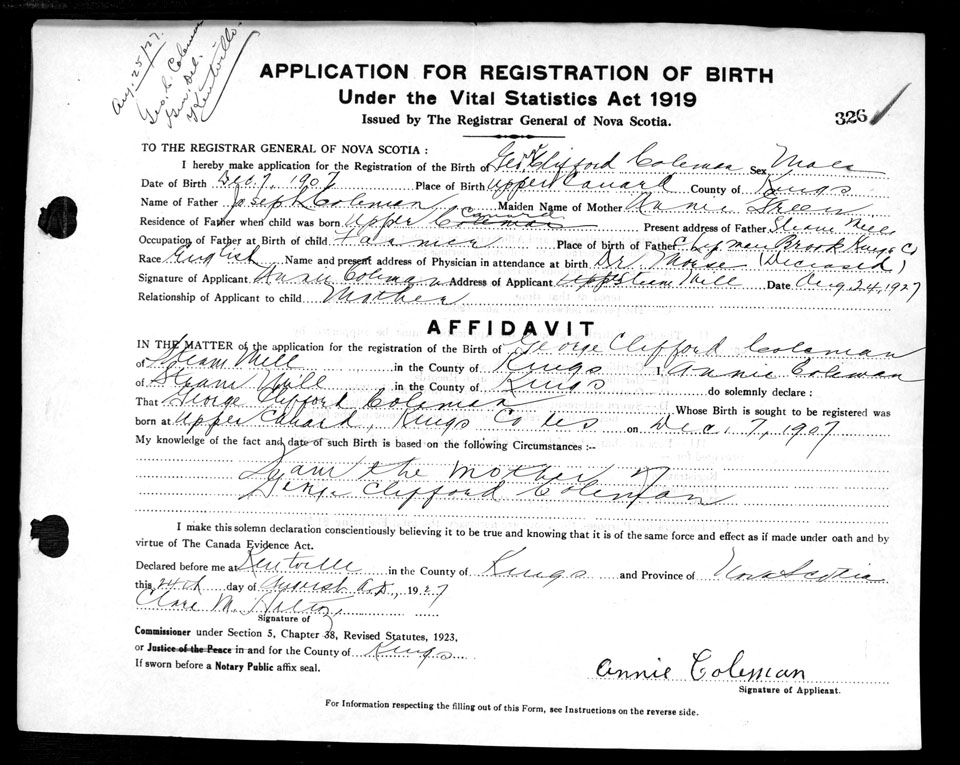 Aug. 25/27.
Geo. C. Coleman
Gen. Del.
Kentville
APPLICATION FOR REGISTRATION OF BIRTH
Under the Vital Statistics Act 1919
Issued by The Registrar General of Nova Scotia.
326
TO THE REGISTRAR GENERAL OF NOVA SCOTIA :
I hereby make application for the Registration of the Birth of Geo. Clifford Coleman Sex Male
Date of Birth Dec. 7, 1907 Place of Birth Upper Canard County of Kings
Name of Father Joseph Coleman Maiden Name of Mother Annie Green
Residence of Father when child was born Upper Canard Present address of Father Steam Mills
Occupation of Father at Birth of child Farmer Place of birth of Father Brook Kings Co
Race English Name and present address of Physician in attendance at birth Dr. Morse (Deceased)
Signature of Applicant Annie Coleman Address of Applicant Steam Mill Date Aug 24, 1927
Relationship of Applicant to child Mother
AFFIDAVIT
IN THE MATTER of the application for the registration of the Birth of George Clifford Coleman
of Steam Mill in the County of Kings I, Annie Coleman
of Steam Mill in the County of Kings do solemnly declare :
That George Clifford Coleman Whose Birth is sought to be registered was
born at Upper Canard, Kings Co on Dec. 7, 1907
My knowledge of the fact and date of such Birth is based on the following Circumstances :--
I am the mother of
George Clifford Coleman
I make this solemn declaration conscientiously believing it to be true and knowing that it is of the same force and effect as if made under oath and by
virtue of The Canada Evidence Act.
Declared before me at Kentville in the County of Kings and Province of Nova Scotia
this 24th day of August A.D., 1927
Clare M.
Signature of
Commissioner under Section 5, Chapter 38, Revised Statutes, 1923,
or Justice of the Peace in and for the County of Kings
If sworn before a Notary Public affix seal.
Annie Coleman
Signature of Applicant.
For Information respecting the filling out of this Form, see Instructions on the reverse side.